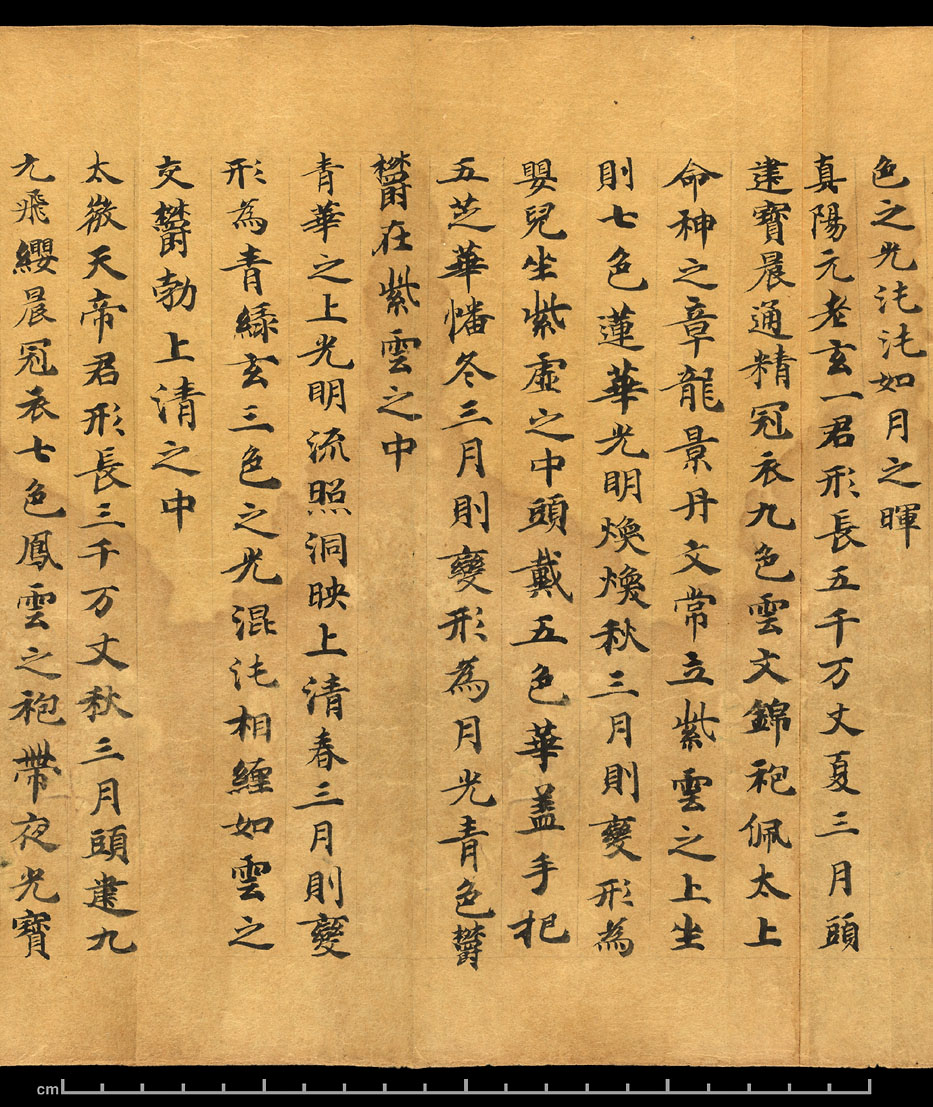 色之光沌沌如月之暉
真陽元老玄一君形長五千万丈夏三月頭
建寶晨通精冠衣九色雲文錦袍佩太上
命神之章龍景丹文常立紫雲之上坐
則七色蓮華光明煥煥秋三月則變形為
嬰兒坐紫虛之中頭戴五色華蓋手把
五芝華幡冬三月則變形為月光青色欝
欝在紫雲之中
青華之上光明流照洞映上清春三月則變
形為青緑玄三色之光混沌相纏如雲之
交欝勃上清之中
太微天帝君形長三千万丈秋三月頭建九
元飛纓晨冠衣七色鳳雲之袍帶夜光寶
cm